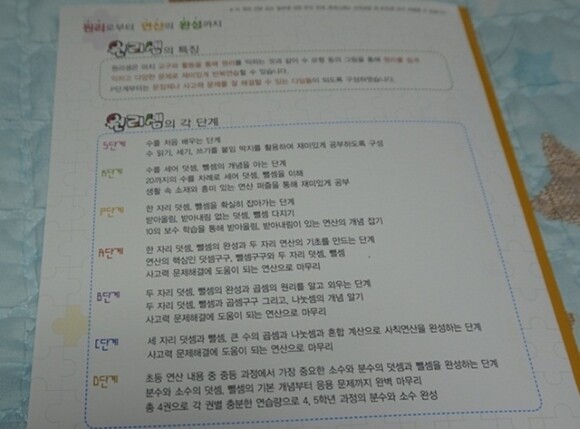 원리로부터 연산의 완성까지
원리셈의 특징
원리셈은 마치 교구와 활동을 통해 원리를 익히는 것과 같이 수 모형 등의 그림을 통해 원리를 쉽게
익히고 다양한 문제로 재미있게 반복연습할 수 있습니다.
P단계부터는 문장제나 사고력 문제를 잘 해결할 수 있는 다짐들이 되도록 구성하였습니다.
원리셈의 각 단계
S단계
수를 처음 배우는 단계
수 읽기, 세기, 쓰기를 붙임 딱지를 활용하여 재미있게 공부하도록 구성
K단계
수를 세어 덧셈, 뺄셈의 개념을 아는 단계
20까지의 수를 차례로 세어 덧셈, 뺄셈을 이해
생활 속 소재와 흥미 있는 연산 퍼즐을 통해 재미있게 공부
P단계
한 자리 덧셈, 뺄셈을 확실히 잡아가는 단계
받아올림, 받아내림 없는 덧셈, 뺄셈 다지기
10의 보수 학습을 통해 받아올림, 받아내림이 있는 연산의 개념 잡기
A단계
한 자리 덧셈, 뺄셈의 완성과 두 자리 연산의 기초를 만드는 단계
연산의 핵심인 덧셈구구, 뺄셈구구와 두 자리 덧셈, 뺄셈
사고력 문제해결에 도움이 되는 연산으로 마무리
B단계
두 자리 덧셈, 뺄셈의 완성과 곱셈의 원리를 알고 외우는 단계
두 자리 덧셈, 뺄셈과 곱셈구구 그리고, 나눗셈의 개념 알기
사고력 문제해결에 도움이 되는 연산으로 마무리
C단계
세 자리 덧셈과 뺄셈, 큰 수의 곱셈과 나눗셈과 혼합 계산으로 사칙연산을 완성하는 단계
사고력 문제해결에 도움이 되는 연산으로 마무리
D단계
초등 연산 내용 중 중등 과정에서 가장 중요한 소수와 분수의 덧셈과 뺄셈을 완성하는 단계
분수와 소수의 덧셈, 뺄셈의 기본 개념부터 응용 문제까지 완벽 마무리
총 4권으로 각 권별 충분한 연습량으로 4, 5학년 과정의 분수와 소수 완성